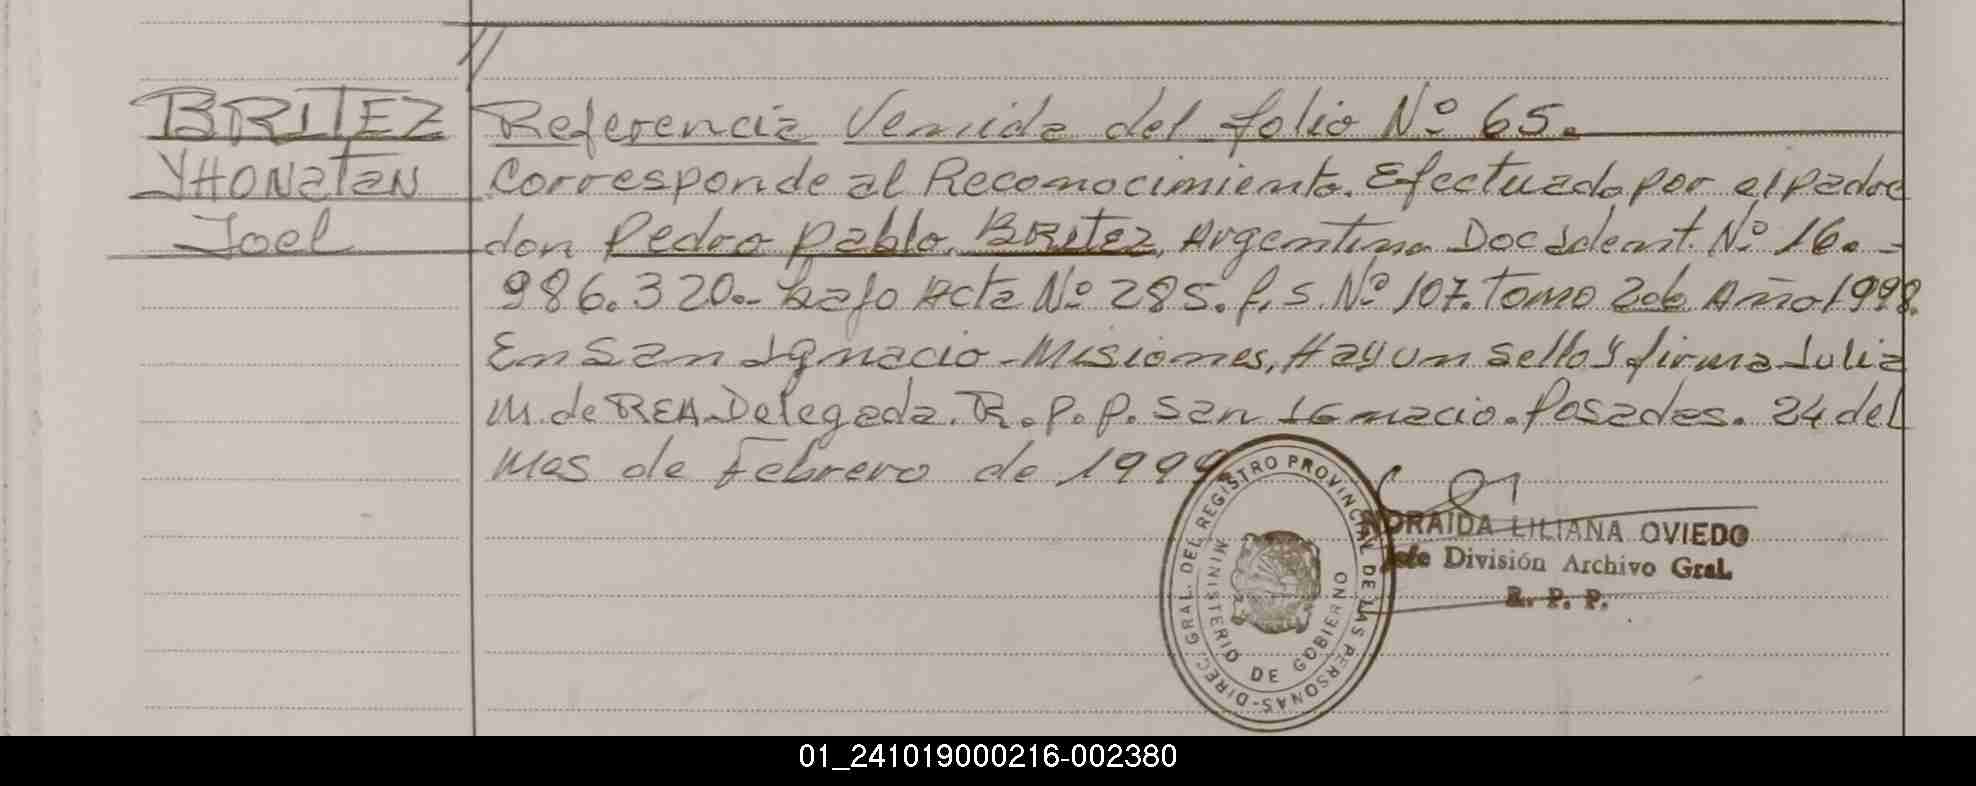 BRITEZ
YHONatan
Joel
Referencia Venida del folio Nº 65.
Corresponde al Reconocimiento. Efectuado por el padre
don Pedro Pablo. BRITEZ, Argentino Doc Ident. Nº 16.-
986.320.- bajo Acta Nº 285. f.s. Nº 107. Tomo 2do Año 1998.
En San Ignacio - Misiones, Hay un sello y firma Julia
M. de REA Delegada. R.P.P. San IGnacio. Posadas. 24 del
Mes de Febrero de 1999
DIREC. GRAL. DEL REGISTRO PROVINCIAL DE LAS PERSONAS-
MINISTERIO DE GOBIERNO
NORAIDA LILIANA OVIEDO
Jefe División Archivo Gral.
R. P. P.
01_241019000216-002380